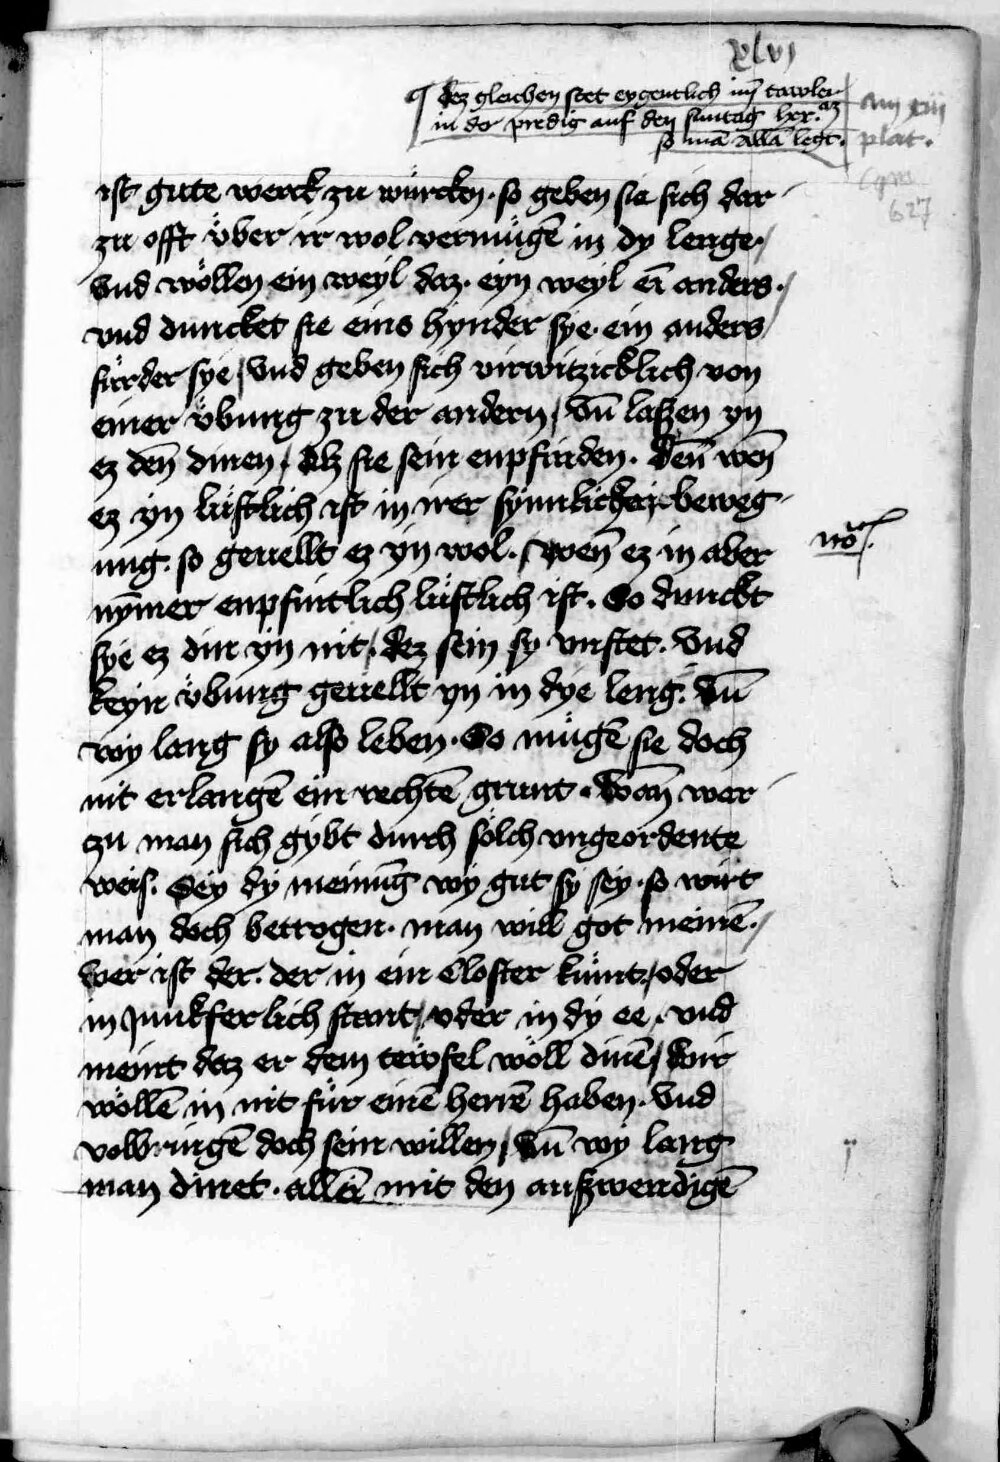 xlvj
¶ dez gleichen stet eygentlich im tawler
in der predig auf den suntag lxx.az
so mā allā legt.
am xiii
plat.
Cgm
627
ist gute werck zu würcken. so geben sie sich dar
zu offt über ir wol vermügē in dy lenge.
vnd wöllen ein weyl daz. eyn weyl eī anders.
vnd duncket sie eins hynder sye. ein anders
fürder sye / vnd geben sich virwitzicklich von
einer übung zu der andern / vn̄ laszen yn
ez den̄ dinen / Alz sie sein enpfinden. den̄ wen̄
ez yn lüstlich ist in irer synnlicheyt beweg
ung. so geuellt ez yn wol. / wen̄ ez in aber
nȳmer enpfintlich lüstlich ist. So dunckt
sye ez din yn nit / dez sein sy vnstet. Vnd
keyn übung geuellt yn in dye leng. vn̄
wy lang sy also leben. So mügē sie doch
nit erlangē ein rechtē grunt. Wan̄ war
zu man sich gybt durch sölch vngeordente
weis. Sey dy meinūg wy gut sy sey. so wirt
man doch betrogen. man will got meinē.
wer ist der. der in ein Closter kümt / oder
in Junkferlich stant / oder in dy ee. vnd
meint daz er dem tewfel wöll dinē / wir
wöllē in nit für einē herrē haben. Vnd
volbringē doch sein willen / vn̄ wy lang
man dinet. allei mit den auszwendigē
no.